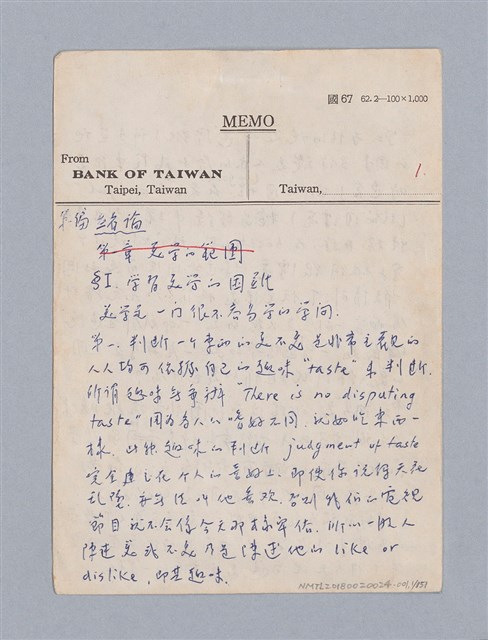 國67 62.2—100×1,000
MEMO
From
BANK OF TAIWAN
Taipei, Taiwan
Taiwan,
1.
第一編 緒論
第一章 美学的範围
§I. 学習美学的困难
美学是一门很不容易学的学问.
第一. 判断一个東西的美不美是非常主覌的
人人均可依據自己的趣味 "taste" 來判断.
所谓趣味無爭辯 "There is no disputing
taste" 因为各人的嗜好不同. 就如吃東西一
樣. 此种趣味的判断 judgment of taste
完全建立在个人的喜好上. 即使你説得天花
乱墜. 也無法叫他喜欢. 否則我们的電視
節目就不会像今天那樣
一般人
陳述美或不美乃是陳述他的 like or
dislike, 即其趣味.
NMTL20180020024-001.1/151